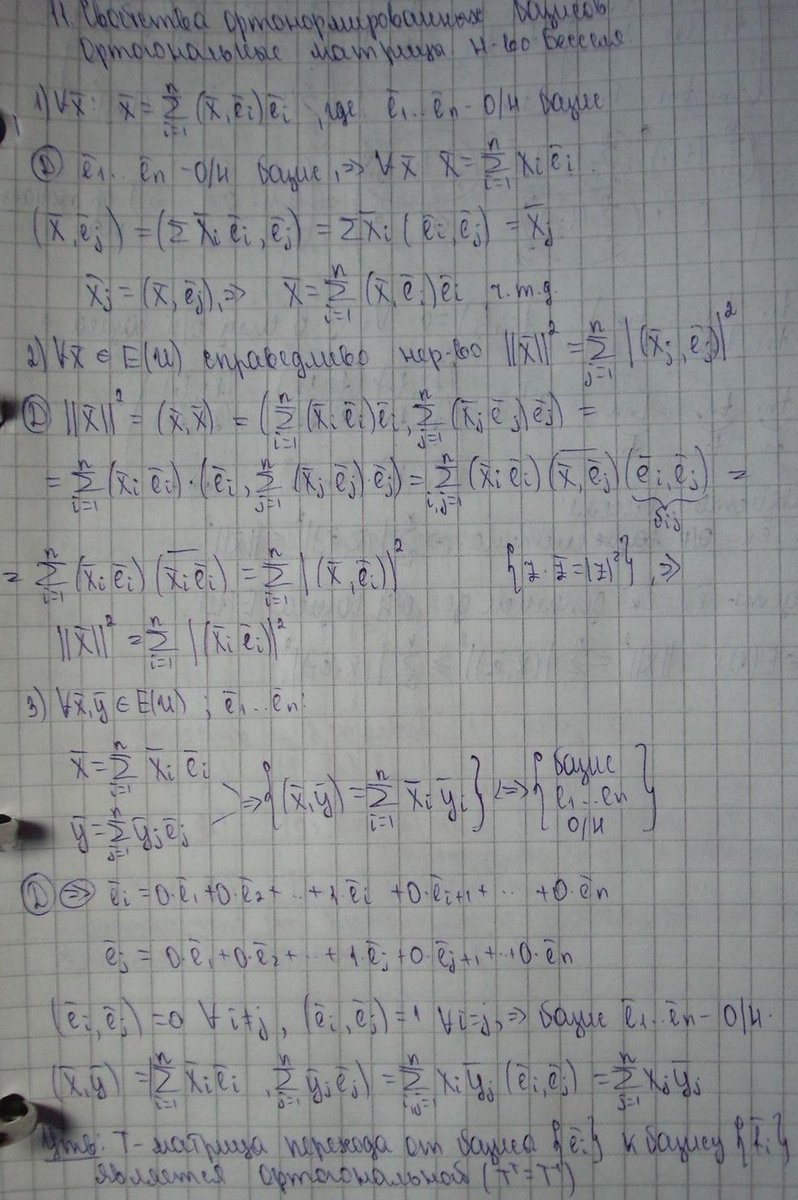 11. Свойства ортонормированных базисов
Ортогональные матрицы Н-во Бесселя
1) ∀x̄: x̄ = Σ_{i=1}^{n} (x̄, ē_i) ē_i, где ē_1..ē_n - О/Н базис
Ⓓ ē_1..ē_n - О/Н базис, ⇒ ∀x̄ x̄ = Σ_{i=1}^{n} x_i ē_i.
(x̄, ē_j) = (Σ x̄_i ē_i, ē_j) = Σ x̄_i (ē_i, ē_j) = x̄_j
x̄_j = (x̄, ē_j), ⇒ x̄ = Σ_{i=1}^{n} (x̄, ē_i) ē_i ч.т.д
2) ∀x̄ ∈ E(U) справедливо нер-во ||x̄||² = Σ_{j=1}^{n} |(x̄_j, ē_j)|²
Ⓓ ||x̄||² = (x̄, x̄) = (Σ_{i=1}^{n} (x̄_i ē_i) ē_i, Σ_{j=1}^{n} (x̄_j ē_j) ē_j) =
= Σ_{i=1}^{n} (x̄_i ē_i)·(ē_i, Σ_{j=1}^{n} (x̄_j ē_j)·ē_j) = Σ_{i,j=1}^{n} (x̄_i ē_i) \overline{(x̄, ē_j)} (ē_i, ē_j) =
δ_ij
= Σ_{i=1}^{n} (x̄_i ē_i) \overline{(x̄_i ē_i)} = Σ_{i=1}^{n} |(x̄, ē_i)|² {z·z̄ = |z|²}, ⇒
||x̄||² = Σ_{i=1}^{n} |(x̄_i ē_i)|²
3) ∀x̄, ȳ ∈ E(U); ē_1..ē_n:
x̄ = Σ_{i=1}^{n} x̄_i ē_i
ȳ = Σ_{j=1}^{n} ȳ_j ē_j
⇒ {(x̄, ȳ) = Σ_{i=1}^{n} x̄_i ȳ_i} ⇔ {базис
ē_1..ē_n
О/Н}
Ⓓ ⇒ ē_i = 0·ē_1 + 0·ē_2 + .. + 1·ē_i + 0·ē_{i+1} + .. + 0·ē_n
ē_j = 0·ē_1 + 0·ē_2 + .. + 1·ē_j + 0·ē_{j+1} + .. + 0·ē_n
(ē_i, ē_j) = 0 ∀i≠j, (ē_i, ē_j) = 1 ∀i=j, ⇒ базис ē_1..ē_n - О/Н.
(x̄, ȳ) = (Σ_{i=1}^{n} x̄_i ē_i, Σ_{j=1}^{n} ȳ_j ē_j) = Σ_{i,j=1}^{n} x_i ȳ_j (ē_i, ē_j) = Σ_{j=1}^{n} x_j ȳ_j
Утв: T - матрица перехода от базиса {ē_i} к базису
является ортогональной